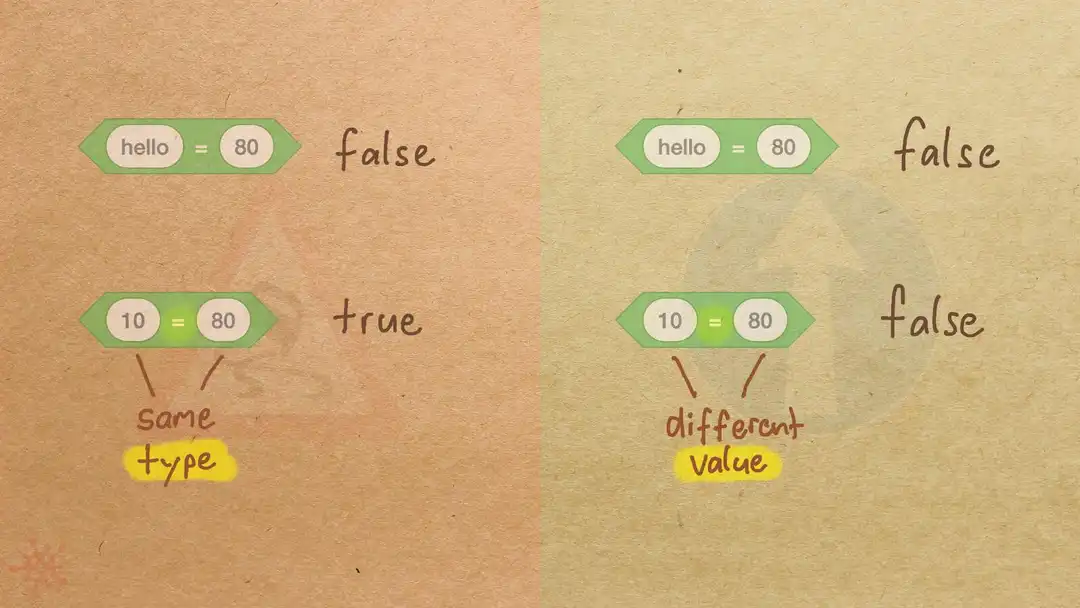 hello = 80 false
10 = 80 true
same
type
hello = 80 false
10 = 80 false
different
value